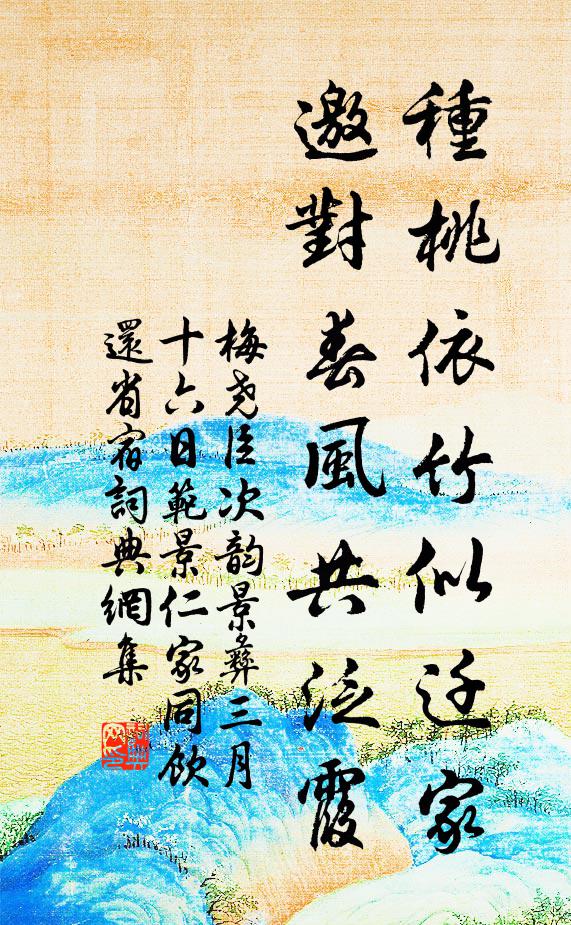 種桃依竹似迁家
邀對春風共泛霞
梅尧臣次韵景彝三月
十六日範景仁家同飲
還省宿詞典網集